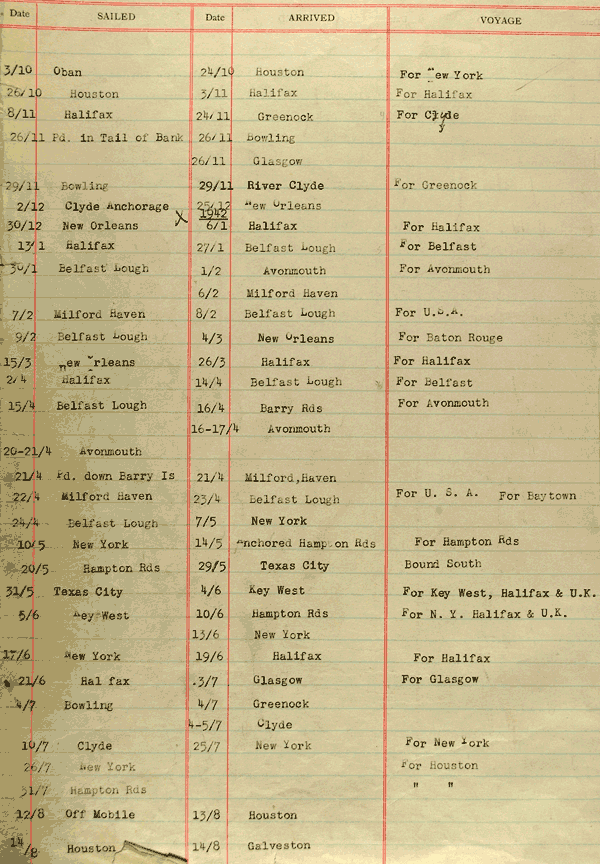 Date SAILED Date ARRIVED VOYAGE
3/10 Oban 24/10 Houston For New York
26/10 Houston 3/11 Halifax For Halifax
8/11 Halifax 24/11 Greenock For Clyde
26/11 Pd. in Tail of Bank 26/11 Bowling
26/11 Glasgow
29/11 Bowling 29/11 River Clyde For Greenock
2/12 Clyde Anchorage 25/12 New Orleans
X 1942
30/12 New Orleans 6/1 Halifax For Halifax
13/1 Halifax 27/1 Belfast Lough For Belfast
30/1 Belfast Lough 1/2 Avonmouth For Avonmouth
6/2 Milford Haven
7/2 Milford Haven 8/2 Belfast Lough For U.S.A.
9/2 Belfast Lough 4/3 New Orleans For Baton Rouge
15/3 New Orleans 26/3 Halifax For Halifax
2/4 Halifax 14/4 Belfast Lough For Belfast
15/4 Belfast Lough 16/4 Barry Rds For Avonmouth
16-17/4 Avonmouth
20-21/4 Avonmouth
21/4 Pd. down Barry Is 21/4 Milford,Haven
22/4 Milford Haven 23/4 Belfast Lough For U. S. A. For Baytown
24/4 Belfast Lough 7/5 New York
10/5 New York 14/5 Anchored Hampton Rds For Hampton Rds
20/5 Hampton Rds 29/5 Texas City Bound South
31/5 Texas City 4/6 Key West For Key West, Halifax & U.K.
5/6 Key West 10/6 Hampton Rds For N. Y. Halifax & U.K.
13/6 New York
17/6 New York 19/6 Halifax For Halifax
21/6 Hal fax .3/7 Glasgow For Glasgow
4/7 Bowling 4/7 Greenock
4-5/7 Clyde
10/7 Clyde 25/7 New York For New York
26/7 New York For Houston
31/7 Hampton Rds " "
12/8 Off Mobile 13/8 Houston
14/8 Houston 14/8 Galveston